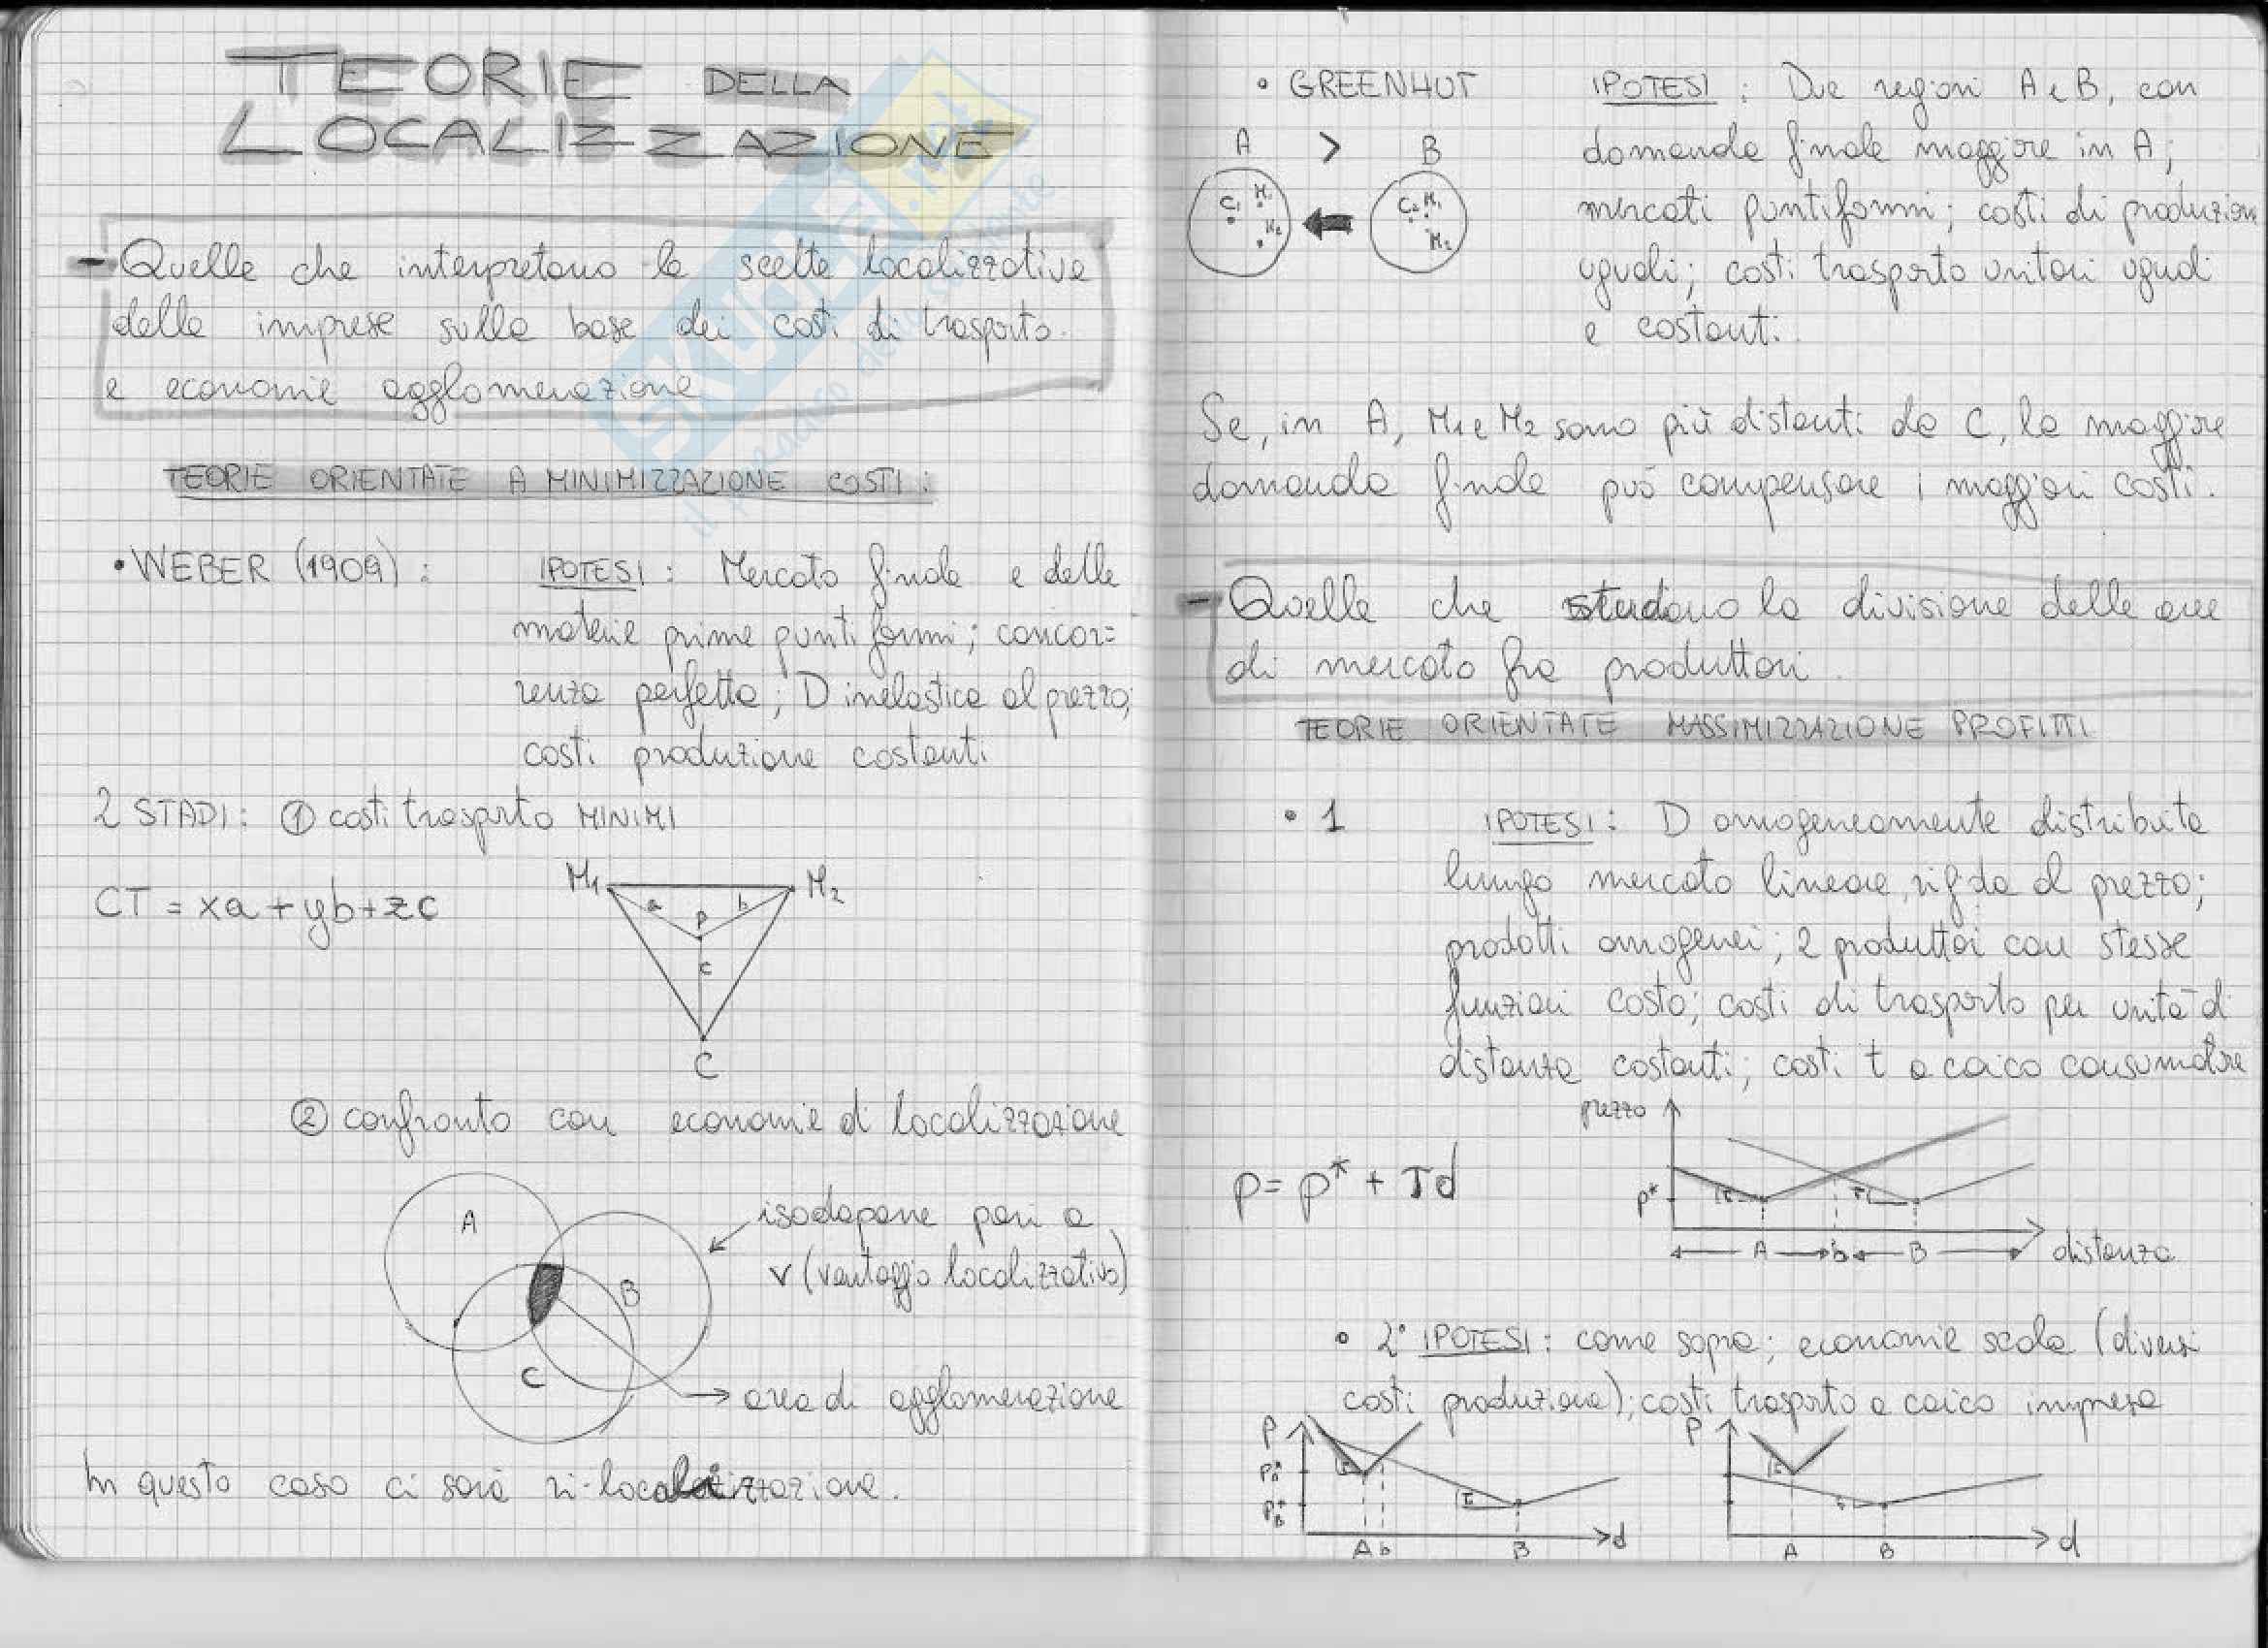 TEORIE DELLA
LOCALIZZAZIONE
- Quelle che interpretano le scelte localizzative
delle imprese sulla base dei costi di trasporto
e economie agglomerazione
TEORIE ORIENTATE A MINIMIZZAZIONE COSTI:
• WEBER (1909): IPOTESI: Mercato finale e delle
materie prime puntiformi; concor=
renza perfetta; D inelastica al prezzo;
costi produzione costanti
2 STADI: ① costi trasporto MINIMI
CT = xa + yb + zc
M1 M2
a P b
c
C
② confronto con economie di localizzazione
A
B
C
isodapane pari a
v (vantaggio localizzativo)
area di agglomerazione
In questo caso ci sarà ri-localizzazione.
• GREENHUT IPOTESI: Due regioni A e B, con
domanda finale maggiore in A;
mercati puntiformi; costi di produzione
uguali; costi trasporto unitari uguali
e costanti.
A > B
C1 M1 M2
C2 M1 M2
Se, in A, M1 e M2 sono più distanti da C, la maggiore
domanda finale può compensare i maggiori costi.
- Quelle che studiano la divisione delle aree
di mercato fra produttori.
TEORIE ORIENTATE MASSIMIZZAZIONE PROFITTI
• 1 IPOTESI: D omogeneamente distribuita
lungo mercato lineare, rigida al prezzo;
prodotti omogenei; 2 produttori con stesse
funzioni costo; costi di trasporto per unità di
distanza costanti; costi t a carico consumatore
p = p* + τd
prezzo
p*
τ τ
A b B distanza
• 2° IPOTESI: come sopra; economie scala (diversi
costi produzione); costi trasporto a carico impresa
P
P*A
P*B
τ τ
A b B d
P
τ τ
A B d
SKUOLA.net